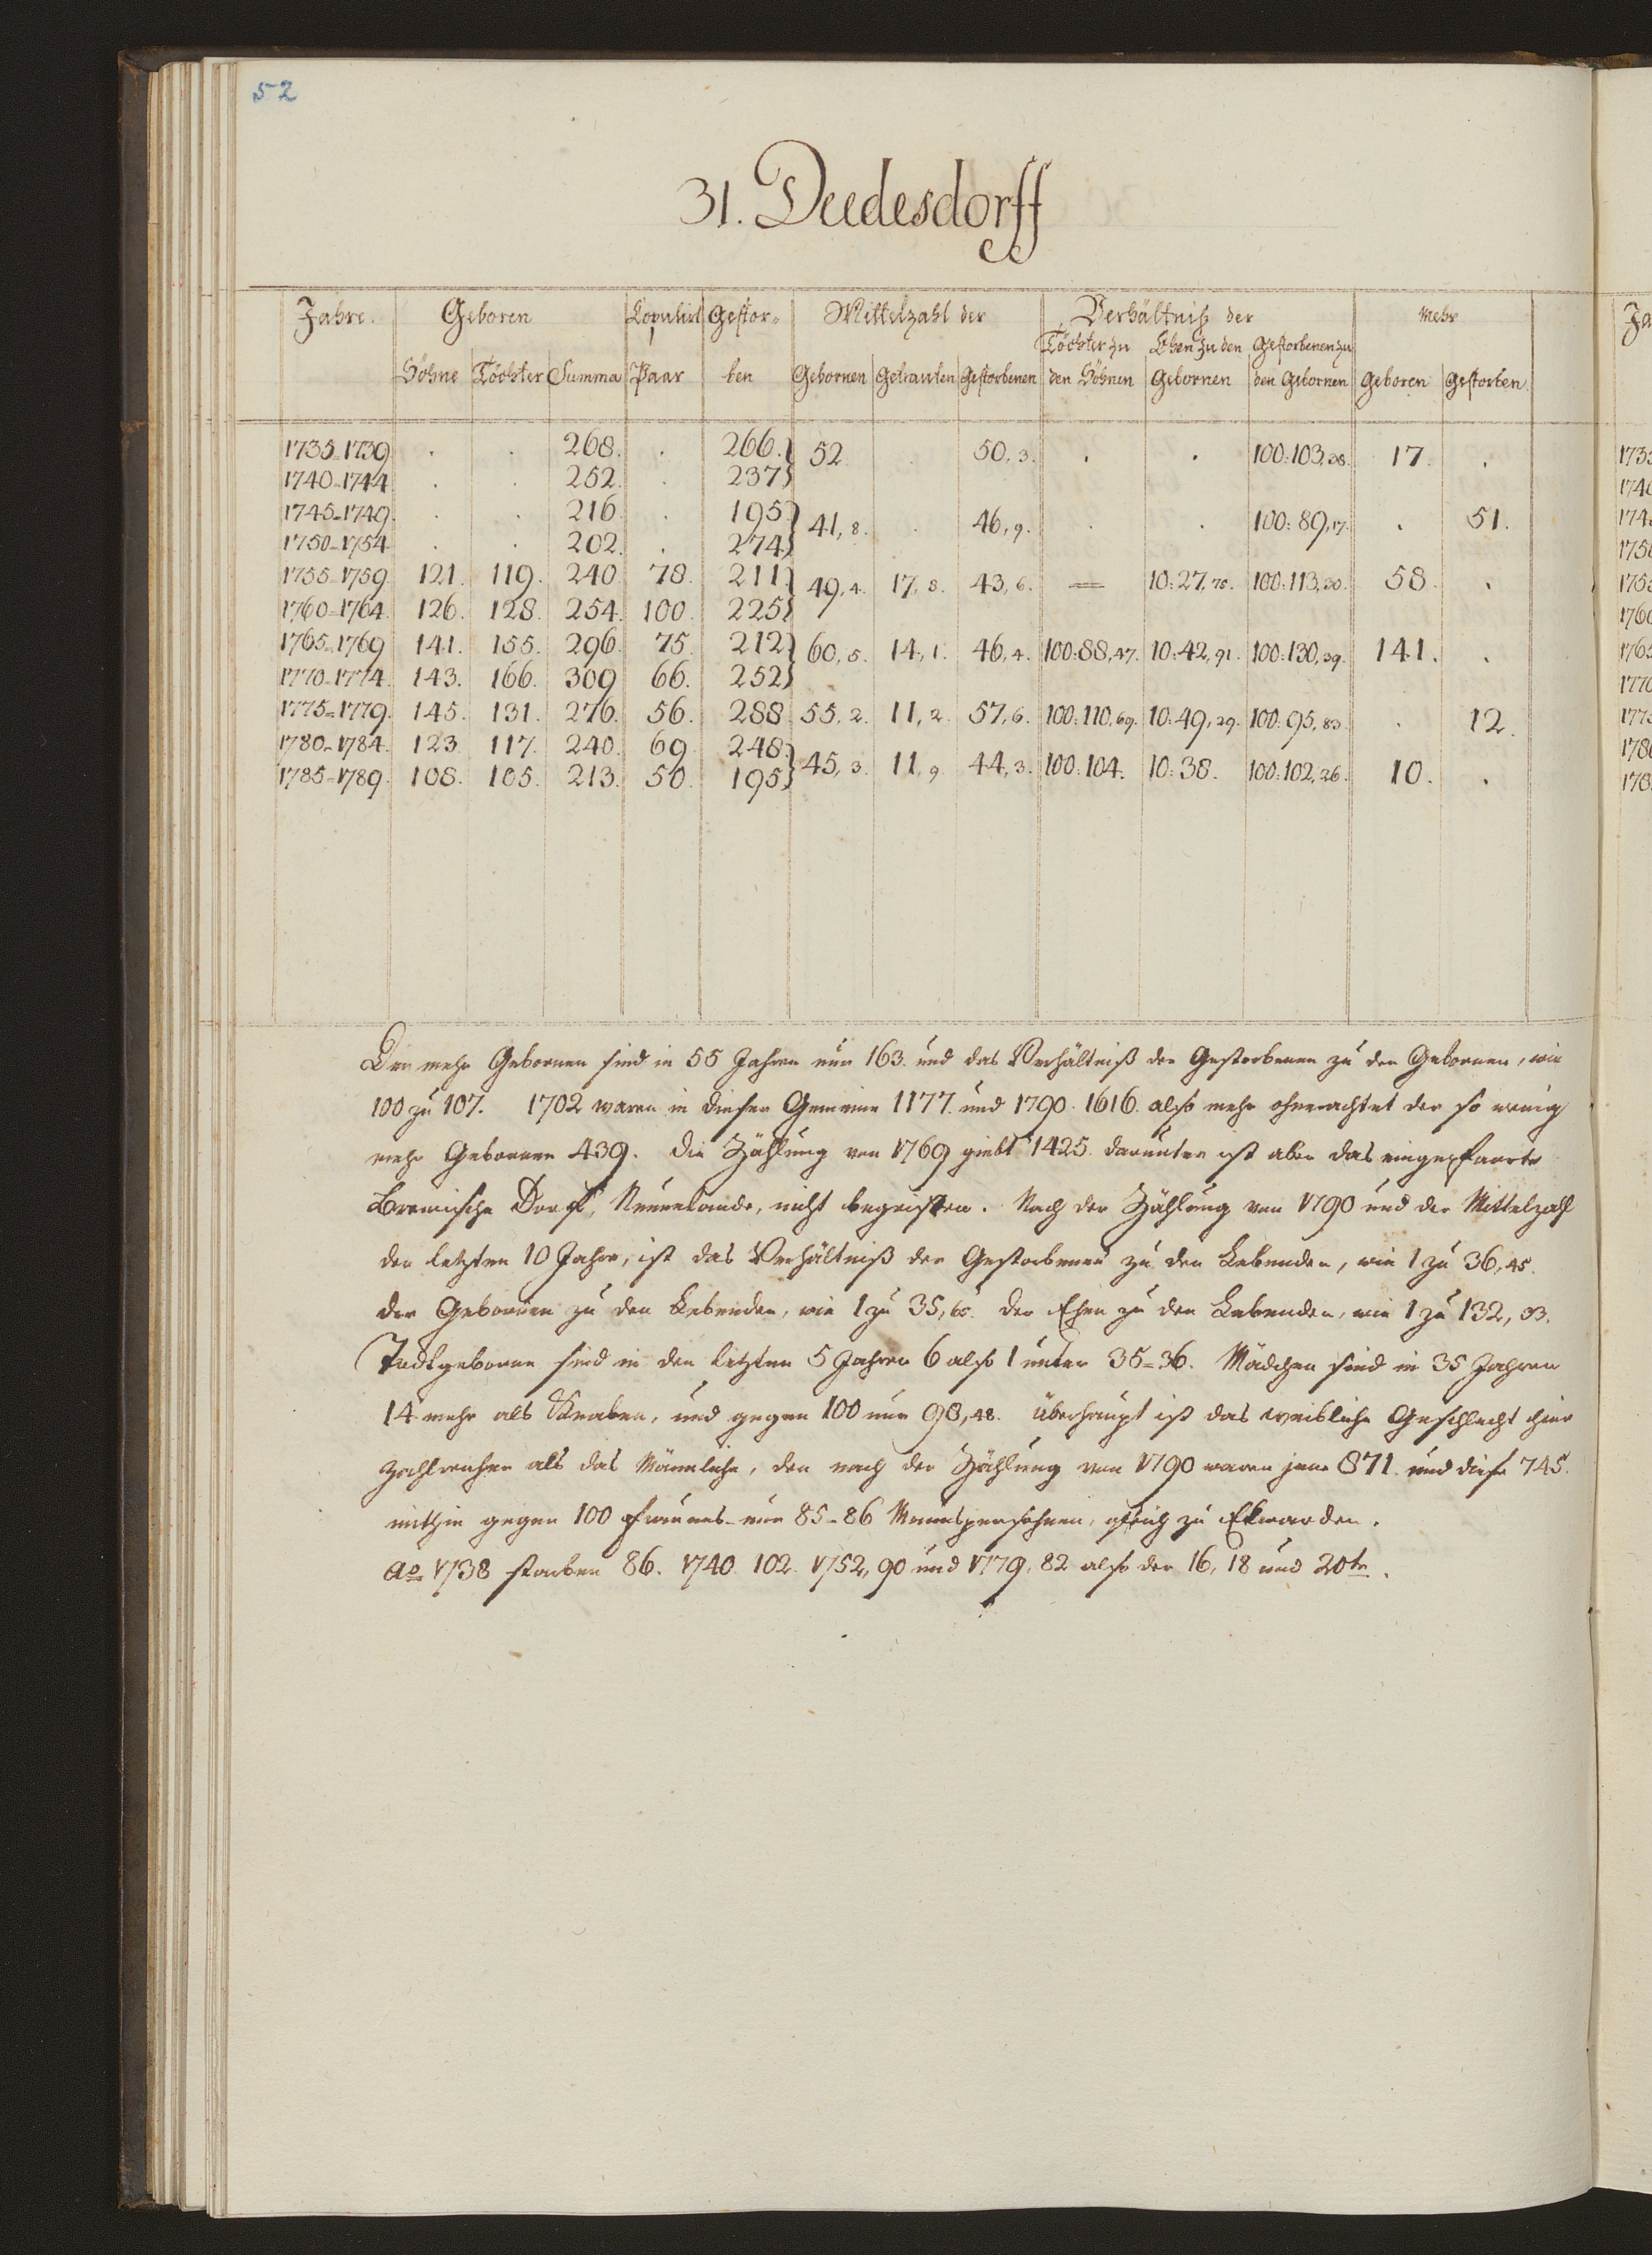 52
31. Deedesdorff
Jahre. Geboren Kopulirt Gestor= Mittelzahl der Verhältniß der Mehr
Töchter zu Ehen zu den Gestorbenen zu
Söhne Töchter Summa Paar ben Gebornen Getrauten Gestorbenen den Söhnen Gebornen den Gebornen Geboren Gestorben
1735=1739 . . 268. . 266. } 52 . 50,3. . . 100:103,38. 17. .
1740=1744 . . 252. . 237
1745=1749. . . 216. . 195 } 41,8. . 46,9. . . 100:89,17. . 51.
1750=1754 . . 202. . 274
1755=1759. 121. 119. 240 78. 211 } 49,4. 17,8. 43,6. = 10:27,75. 100:113,30. 58. .
1760=1764. 126. 128. 254. 100. 225
1765=1769 141. 155. 296. 75. 212 } 60,5. 14,1. 46,4. 100:88,47. 10:42,91. 100:130,39. 141. .
1770=1774. 143. 166. 309 66. 252
1775=1779. 145. 131. 276. 56. 288. 55,2. 11,2. 57,6. 100:110,69. 10:49,29. 100:95,83. . 12.
1780=1784. 123. 117. 240. 69. 248. } 45,3. 11,9. 44,3. 100:104. 10:38. 100:102,26. 10. .
1785=1789. 108. 105. 213. 50. 195
Der mehr Gebornen sind in 55 Jahren nur 163. und das Verhältniß der Gestorbenen zu den Gebornen, wie
100 zu 107. 1702 waren in dieser Gemeine 1177. und 1790. 1616. also mehr ohnerachtet der so wenig
mehr Gebornen 439. Die Zählung von 1769 giebt 1425. darunter ist aber das eingepfarrte
Bremische Dorf, Neuelande, nicht begriffen. Nach der Zählung von 1790 und der Mittelzahl
der letzten 10 Jahre, ist das Verhältniß der Gestorbenen zu den Lebenden, wie 1 zu 36,45.
der Gebornen zu den Lebenden, wie 1 zu 35,65. der Ehen zu den Lebenden, wie 1 zu 132,93.
Todtgeborne sind in den letzten 5 Jahren 6 also 1 unter 35=36. Mädchen sind in 35 Jahren
14 mehr als Knaben, und gegen 100 nur 98,48. überhaupt ist das weibliche Geschlecht hier
zahlreicher als das Männliche, den nach der Zählung von 1790 waren jene 871. und diese 745.
mithin gegen 100 Frauens= nur 85=86 Mannspersohnen, gleich zu Ekwarden.
Ao 1738 starben 86. 1740. 102. 1752, 90 und 1779, 82 also der 16, 18 und 20te.